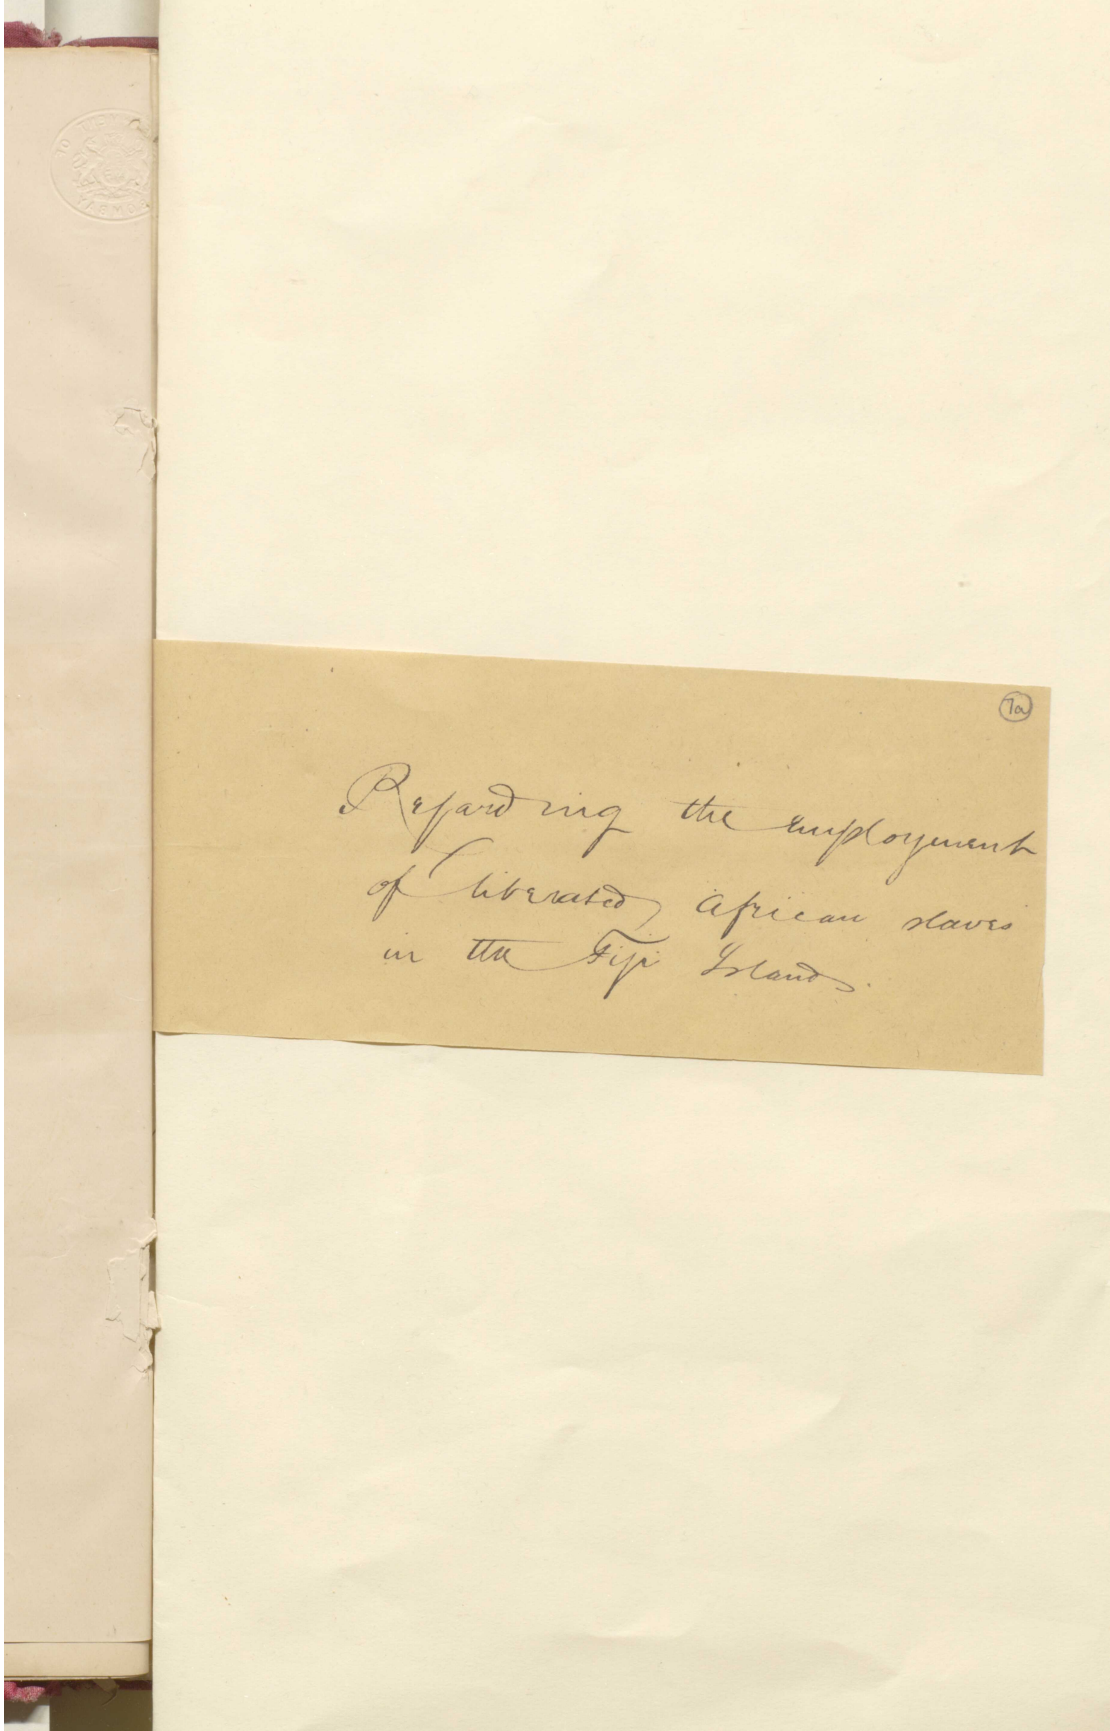 7a
Regarding the employment
of liberated African slaves
in the Fiji Islands.